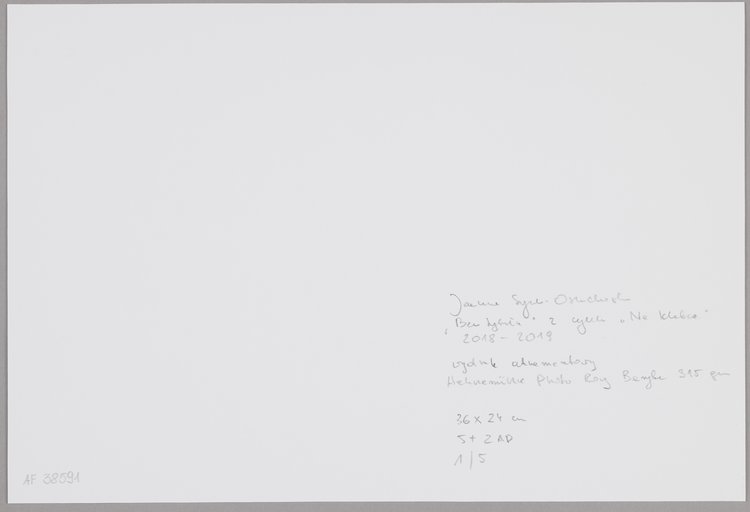 „Bez tytułu" z cyklu „Na klatce"
2018 - 2019
wydruk atramentowy
Hahnemühle Photo Rag Baryta 315 gsm
36 x 24 cm
5 + 2 AP
1/5
AF 38591